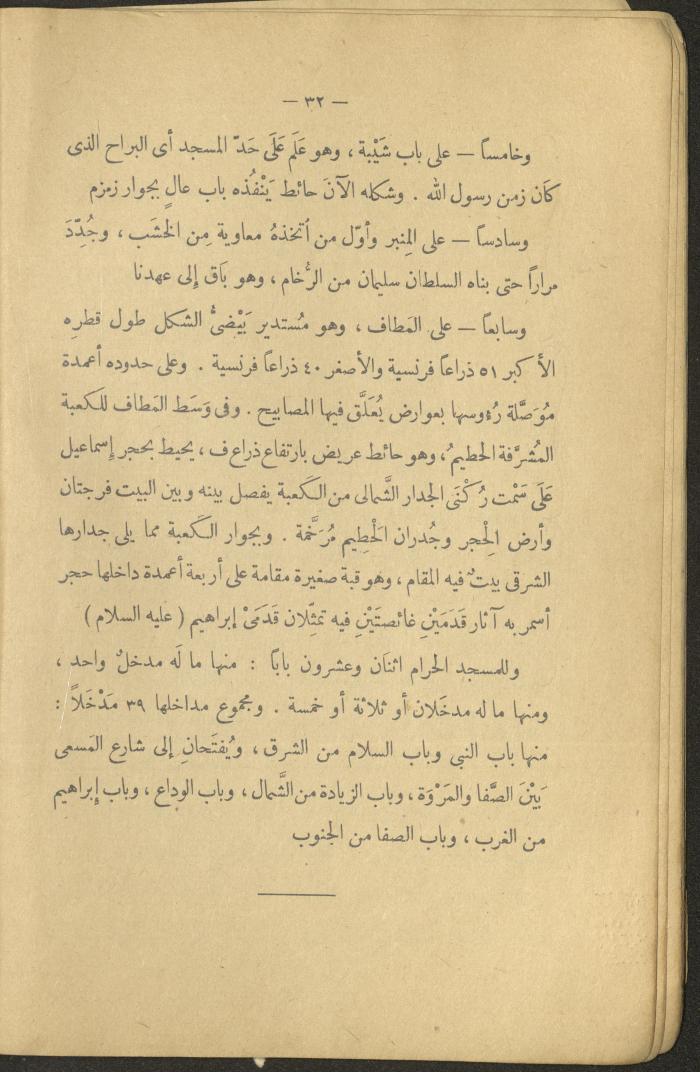 — ٣٢ —
وخامساً — على باب شَيْبة ، وهو عَلَم عَلَى حَدّ المسجد أى البراح الذى
كَان زمن رسول الله . وشكله الآنَ حائط يَنْفُذه باب عالٍ بجوار زمزم
وسادسا — على المِنبر وأوّل من اتخذهُ معاوية مِن الخشَب ، وجُدِّدَ
مراراً حتى بناه السلطان سليمان من الرُّخام ، وهو بَاق إلى عهدنا
وسابعاً — على المَطاف ، وهو مُستدير بَيْضىُّ الشكل طول قطره
الأكبر ٥١ ذراعاً فرنسية والأصغر ٤٠ ذراعاً فرنسية . وعلى حدوده أعمدة
مُوَصَّلة رُءوسها بعوارض يُعَلَّق فيها المصابيح . وفى وَسَط المَطاف للكعبة
المُشرَّفة الحطيمُ ، وهو حائط عريض بارتفاع ذراع ف ، يحيط بحجر إسماعيل
عَلَى سَمْت رُكْنَى الجدار الشَّمالى من الكعبة يفصل بينه وبين البيت فرجتان
وأرض الِحْجر وجُدران الَحْطِيم مُرَخَّمة . وبجوار الكعبة مما يلى جدارها
الشرقى بيتٌ فيه المقام ، وهو قبة صغيرة مقامة على أربعة أعمدة داخلها حجر
أسمر به آثار قَدَمَيْنِ غائصتَيْنِ فيه تمثِّلان قَدَمَىْ إبراهيم ( عليه السلام )
وللمسجد الحرام اثنان وعشرون بابًا : منها ما لَه مدخلٌ واحد ،
ومنها ما له مدخَلان أو ثلاثة أو خمسة . ومجموع مداخلها ٣٩ مَدْخَلاً :
منها باب النبى وباب السلام من الشرق ، ويُفتَحانِ إلى شارع المَسعى
بَيْنَ الصَّفا والمَرْوَة ، وباب الزيادة من الشَّمال ، وباب الوداع ، وباب إبراهيم
من الغرب ، وباب الصفا من الجنوب